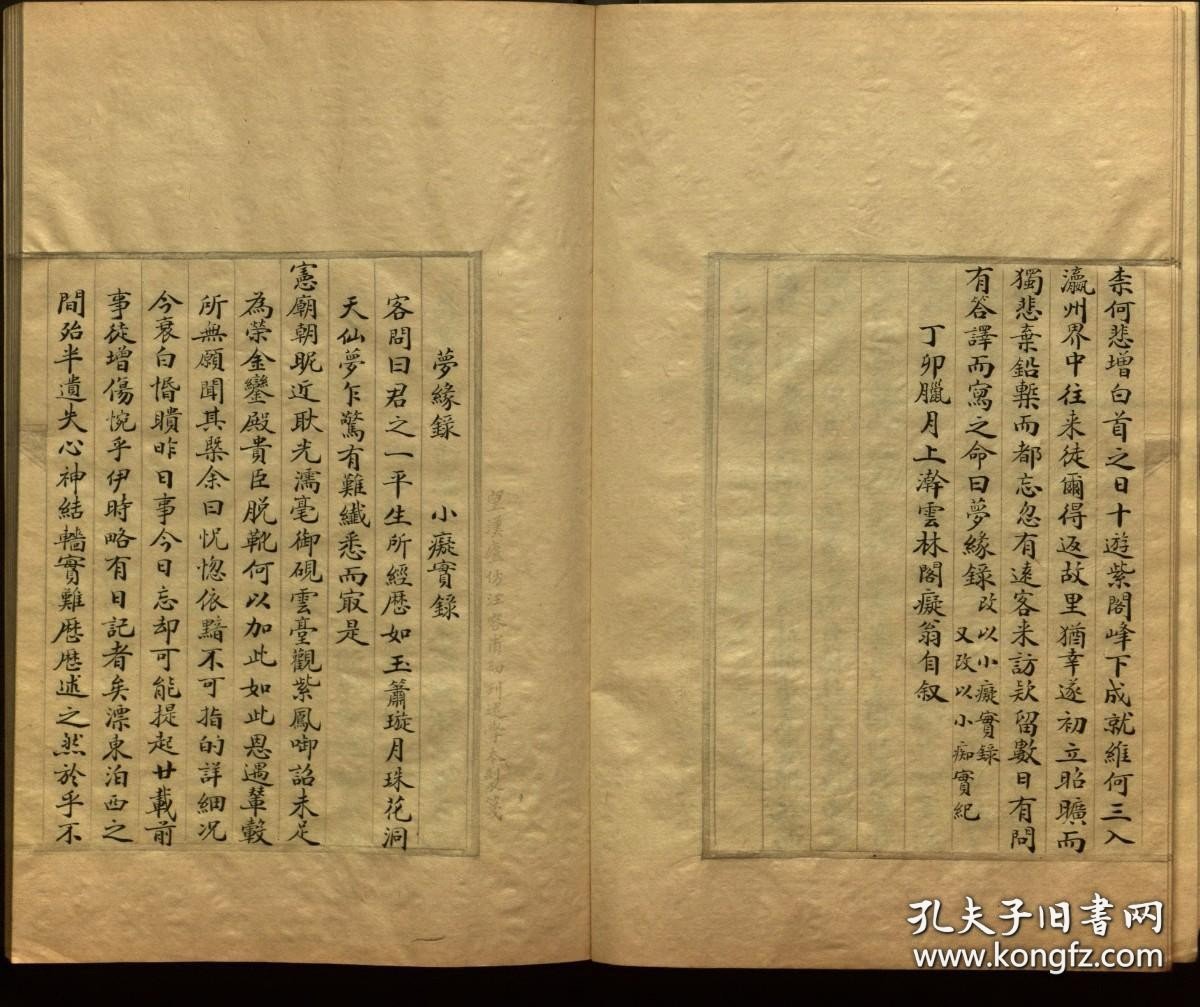 柰何悲增白首之日十遊紫閣峰下成就維何三入
瀛州界中往来徒爾得返故里猶幸遂初立昭曠而
獨悲棄鉛槧而都忘忽有遠客来訪欵留數日有問
有答譯而寫之命曰夢緣錄改以小癡實錄
又改以小痴實紀
丁卯臘月上澣雲林閣癡翁自叙
夢緣錄 小癡實錄
客問曰君之一平生所經歷如玉簫璇月珠花洞
天仙夢乍驚有難纖悉而寂是
憲廟朝昵近耿光濡毫御硯雲臺觀紫鳳啣詔未足
為榮金鑾殿貴臣脱靴何以加此如此恩遇輦轂
所無願聞其槩余曰怳惚依黯不可指的詳細况
今衰白惛瞶昨日事今日忘却可能提起廿載前
事徒增傷惋乎伊時略有日記者矣漂東泊西之
間殆半遺失心神結轖實難歷歷述之然於乎不
孔夫子旧书网
www.kongfz.com